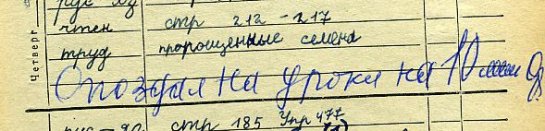 рус яз
чтен стр 212-217
труд пророщенные семена
Четверг
Опоздал на уроки на 10 мин
рус-яз стр 185 Упр 477